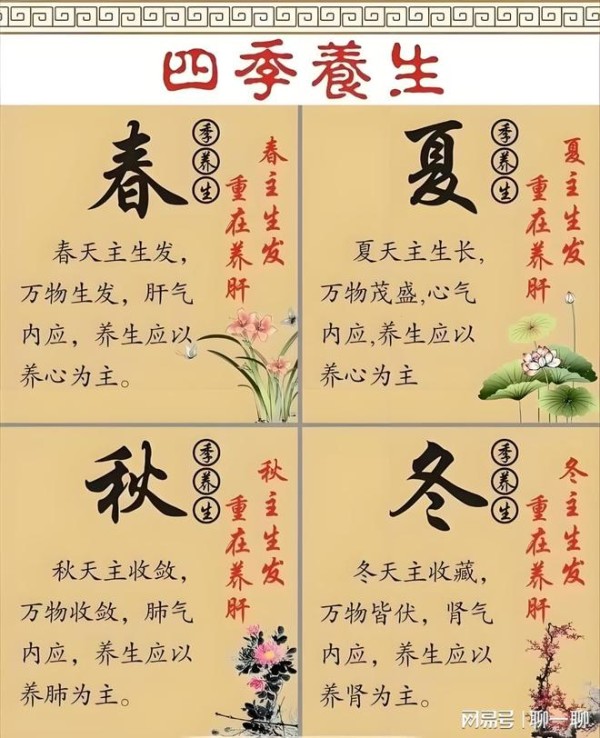 四季養生
春
季养生
春主生发
重在养肝
春天主生发，
万物生发，肝气
内应，养生应以
养心为主。
夏
季养生
夏主生发
重在养肝
夏天主生长,
万物茂盛,心气
内应,养生应以
养心为主
秋
季养生
秋主生发
重在养肝
秋天主收敛，
万物收敛，肺气
内应，养生应以
养肺为主。
冬
季养生
冬主生发
重在养肝
冬天主收藏，
万物皆伏，肾气
内应，养生应以
养肾为主。
网易号|聊一聊